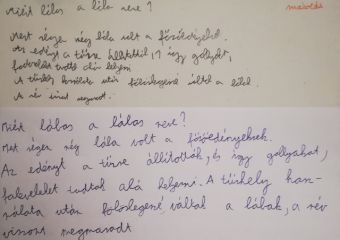 Miért lábas a lábas neve?
másolás
Mert régen még lába volt a főzőedénynek.
Az edényt a tűzre állították, így gallyakat,
tudtak alá helyezni.
A tűzhely használata után fölöslegessé váltak a lábak.
A név viszont megmaradt.
Miért lábas a lábas neve?
Mert régen még lába volt a főzőedényeknek.
Az edényt a tűzre állították, és így gallyakat,
falevelet tudtak alá helyezni. A tűzhely hasz-
nálata után fölöslegessé váltak a lábak, a név
viszont megmaradt